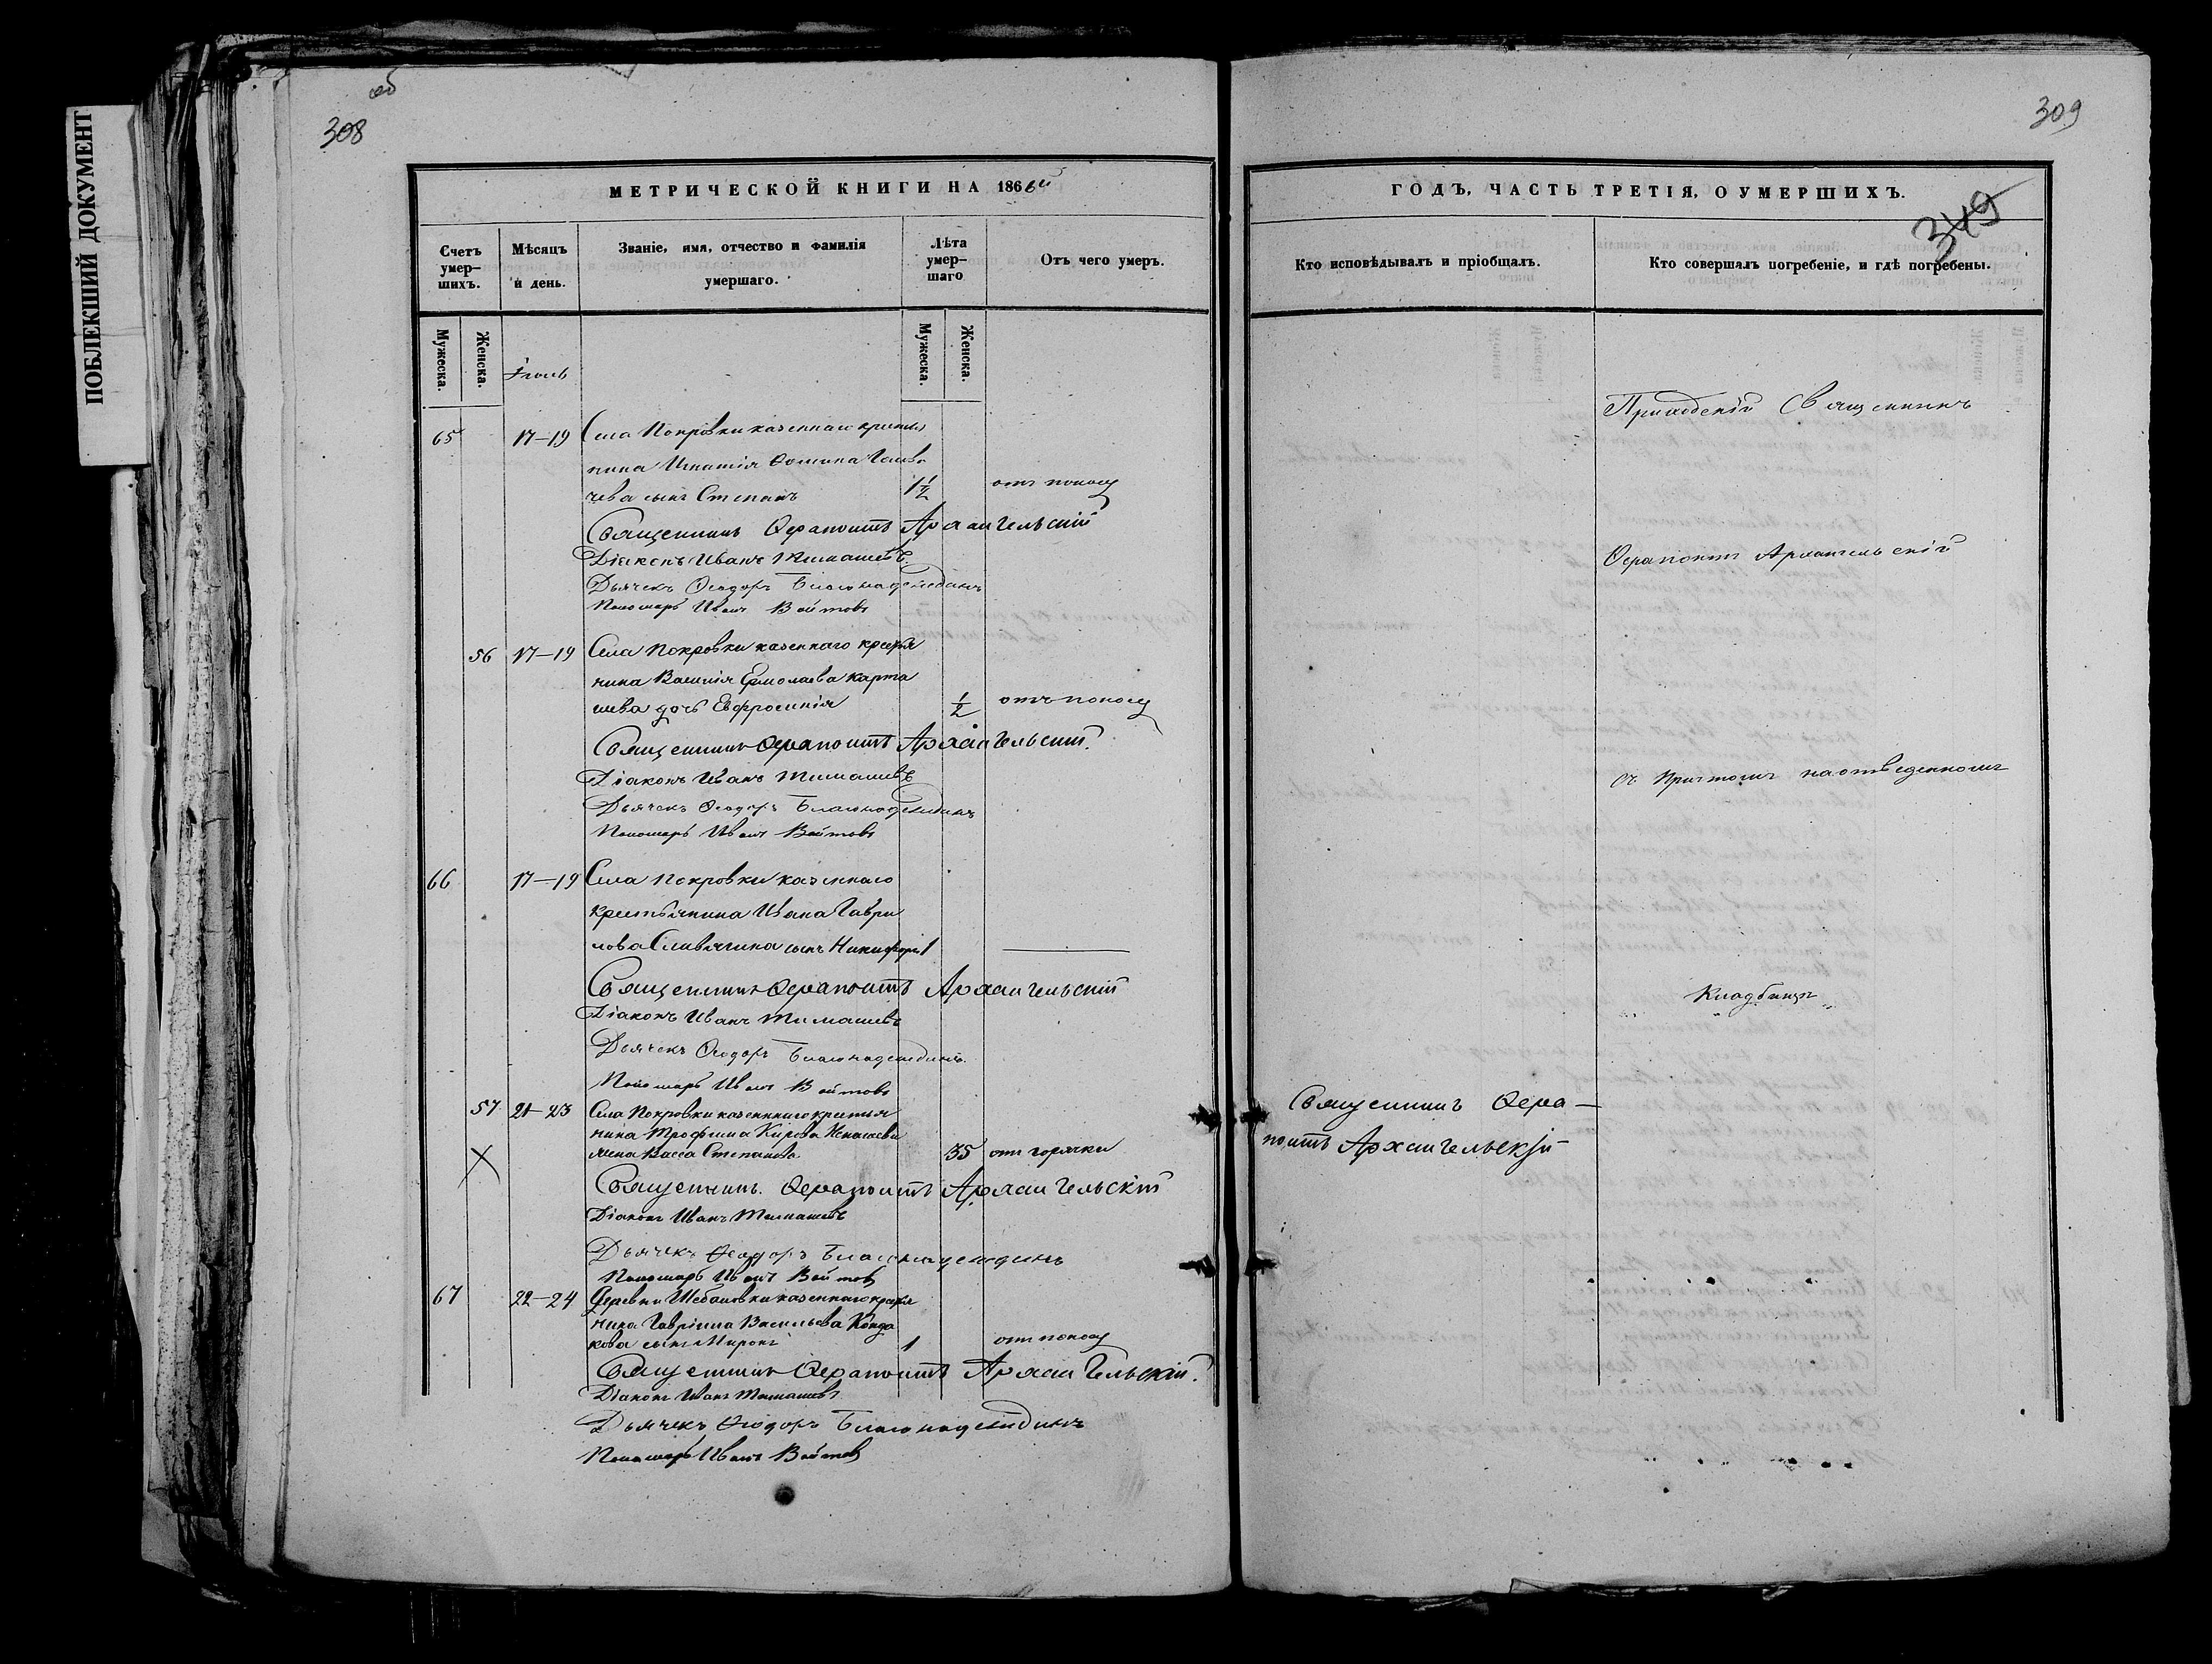 ПОБЛЕКШИЙ ДОКУМЕНТ
об
308
МЕТРИЧЕСКОЙ КНИГИ НА 1866й
Счетъ умер-шихъ.
Мѣсяцъ и день.
Званіе, имя, отчество и фамилія умершаго.
Лѣта умер-шаго
Отъ чего умеръ.
Мужеска.
Женска.
Мужеска.
Женска.
65 17–19 Села Покровки казеннаго кресть
нина Игнатія Ѳомина
чева сынъ Степанъ 1½ отъ поносу
Священникъ Ѳерапонтъ Архангельскій
Діаконъ Иванъ Тимашевъ
Дьячекъ Ѳеодоръ Благонадеждинъ
Пономарь Иванъ Войтовъ
56 17–19 Села Покровки казеннаго крестья
нина Василія Ермолаева Карта
шева дочь Евфросинія ½ отъ поносу
Священникъ Ѳерапонтъ Архангельскій.
Діаконъ Иванъ Тимашевъ
Дьячекъ Ѳеодоръ Благонадеждинъ
Пономарь Иванъ Войтовъ
66 17–19 Села Покровки казеннаго
крестьянина Ивана Гаври
лова сынъ Никифоръ 1 —
Священникъ Ѳерапонтъ Архангельскій
Діаконъ Иванъ Тимашевъ
Дьячекъ Ѳеодоръ Благонадеждинъ.
Пономарь Иванъ Войтовъ
57 21–23 Села Покровки казеннаго крестья
нина Трофима Кирова
жена Васса Степанова 35 отъ горячки
Священникъ Ѳерапонтъ Архангельскій
Діаконъ Иванъ Тимашевъ
Дьячекъ Ѳеодоръ Благонадеждинъ
Пономарь Иванъ Войтовъ
67 22–24 Деревни казеннаго крестья
нина Гавріила Васильева Конда
кова сынъ Миронъ 1 отъ поносу
Священникъ Ѳерапонтъ Архангельскій.
Діаконъ Иванъ Тимашевъ
Дьячекъ Ѳеодоръ Благонадеждинъ
Пономарь Иванъ Войтовъ
309
ГОДЪ, ЧАСТЬ ТРЕТІЯ, О УМЕРШИХЪ.
349
Кто исповѣдывалъ и пріобщалъ.
Кто совершалъ погребеніе, и гдѣ погребены.
Приходскій Священникъ
Ѳерапонтъ Архангельскій
съ Причтомъ на отведенномъ
Кладбищѣ
Священникъ Ѳера–
понтъ Архангельскій